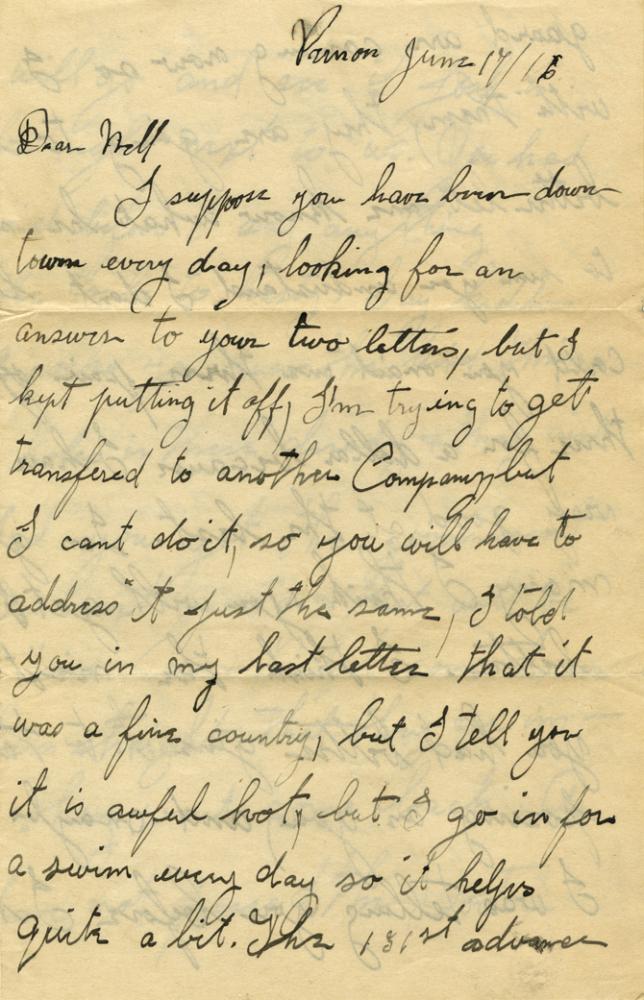 Vernon June 17/16
Dear Nell
I suppose you have been down
town every day, looking for an
answer to your two letters, but I
kept putting it off, I'm trying to get
transfered to another Company, but
I cant do it, so you will have to
address it just the same, I told
you in my last letter that it
was a fine country, but I tell you
it is awful hot, but I go in for
a swim every day so it helps
quite a bit. The 131st advance